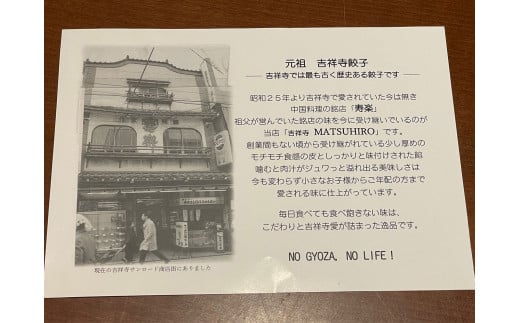 元祖　吉祥寺餃子
吉祥寺では最も古く歴史ある餃子です
昭和25年より吉祥寺で愛されていた今は無き
中国料理の銘店「寿楽」
祖父が営んでいた銘店の味を今に受け継いでいるのが
当店「吉祥寺 MATSUHIRO」です。
創業間もない頃から受け継がれている少し厚めの
モチモチ食感の皮としっかりと味付けされた餡
噛むと肉汁がジュワっと溢れ出る美味しさは
今も変わらず小さなお子様からご年配の方まで
愛される味に仕上がっています。
毎日食べても食べ飽きない味は、
こだわりと吉祥寺愛が詰まった逸品です。
NO GYOZA, NO LIFE!
現在の吉祥寺サンロード商店街にありました